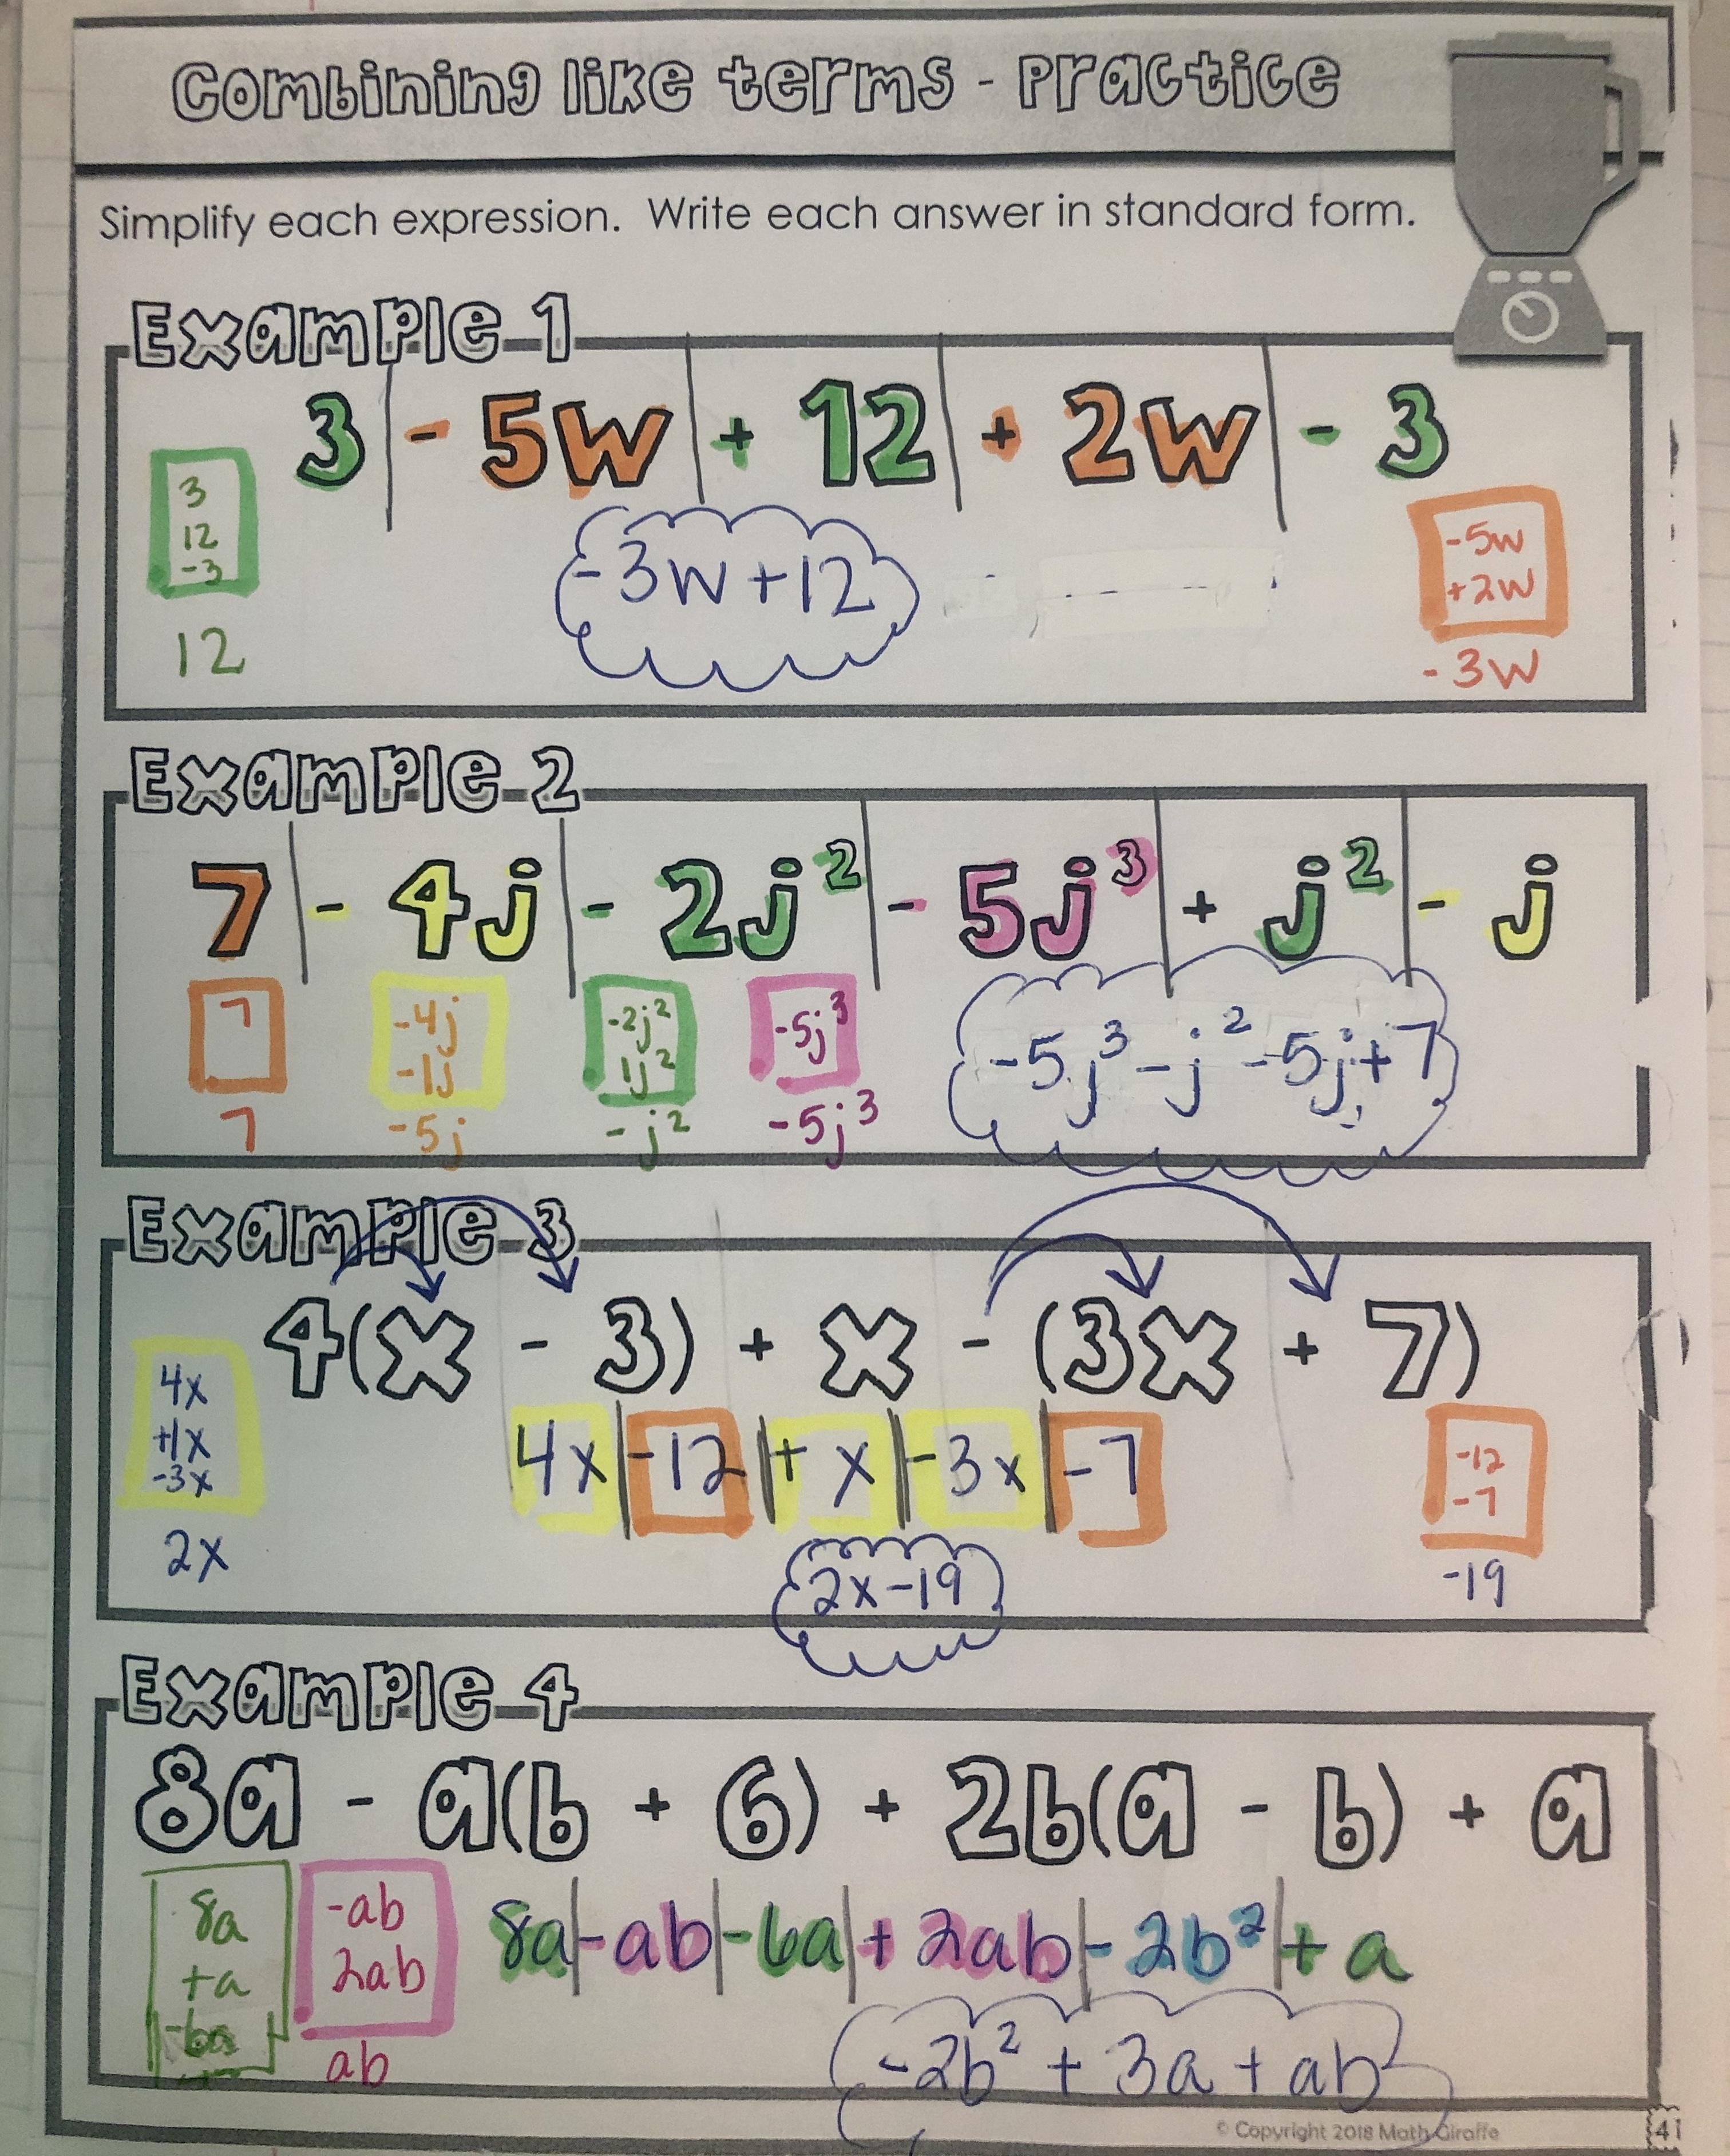 Combining like terms - Practice
Simplify each expression. Write each answer in standard form.
Example 1
3 - 5w + 12 + 2w - 3
3
12
-3
12
-3w+12
-5w
+2w
-3w
Example 2
7 - 4j - 2j² - 5j³ + j² - j
7
7
-4j
-1j
-5j
-2j²
1j²
-j²
-5j³
-5j³
-5j³-j²-5j+7
Example 3
4(x - 3) + x - (3x + 7)
4x
+1x
-3x
2x
4x -12 + x -3x -7
2x-19
-12
-7
-19
Example 4
8a - a(b + 6) + 2b(a - b) + a
8a
+a
-6a
-ab
2ab
ab
8a -ab -6a + 2ab - 2b² + a
-2b² + 3a + ab
© Copyright 2018 Math Giraffe
41